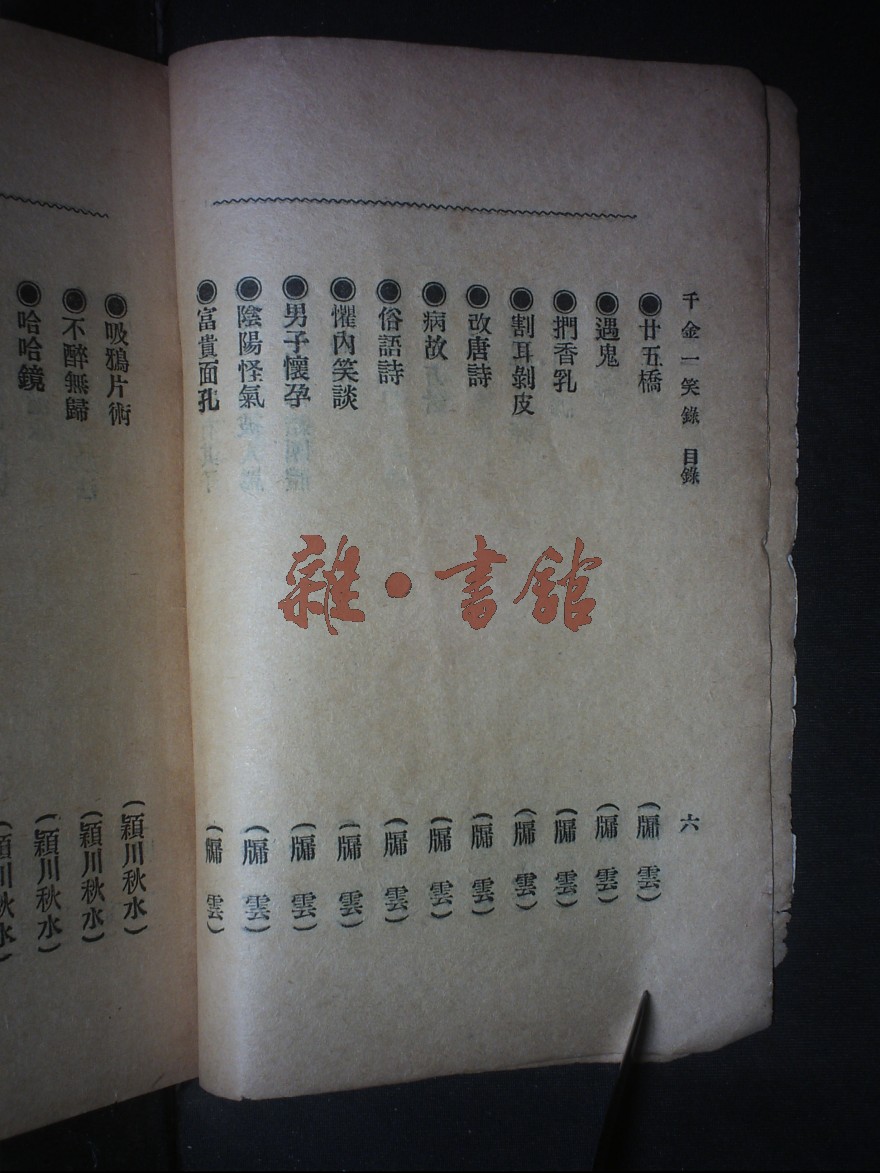 千金一笑錄 目錄 六
◉廿五橋 (牖雲)
◉遇鬼 (牖雲)
◉捫香乳 (牖雲)
◉割耳剝皮 (牖雲)
◉改唐詩 (牖雲)
◉病故 (牖雲)
◉俗語詩 (牖雲)
◉懼內笑談 (牖雲)
◉男子懷孕 (牖雲)
◉陰陽怪氣 (牖雲)
◉富貴面孔 (牖雲)
◉吸鴉片術 (穎川秋水)
◉不醉無歸 (穎川秋水)
◉哈哈鏡 (穎川秋水)
川秋水
雜·書館